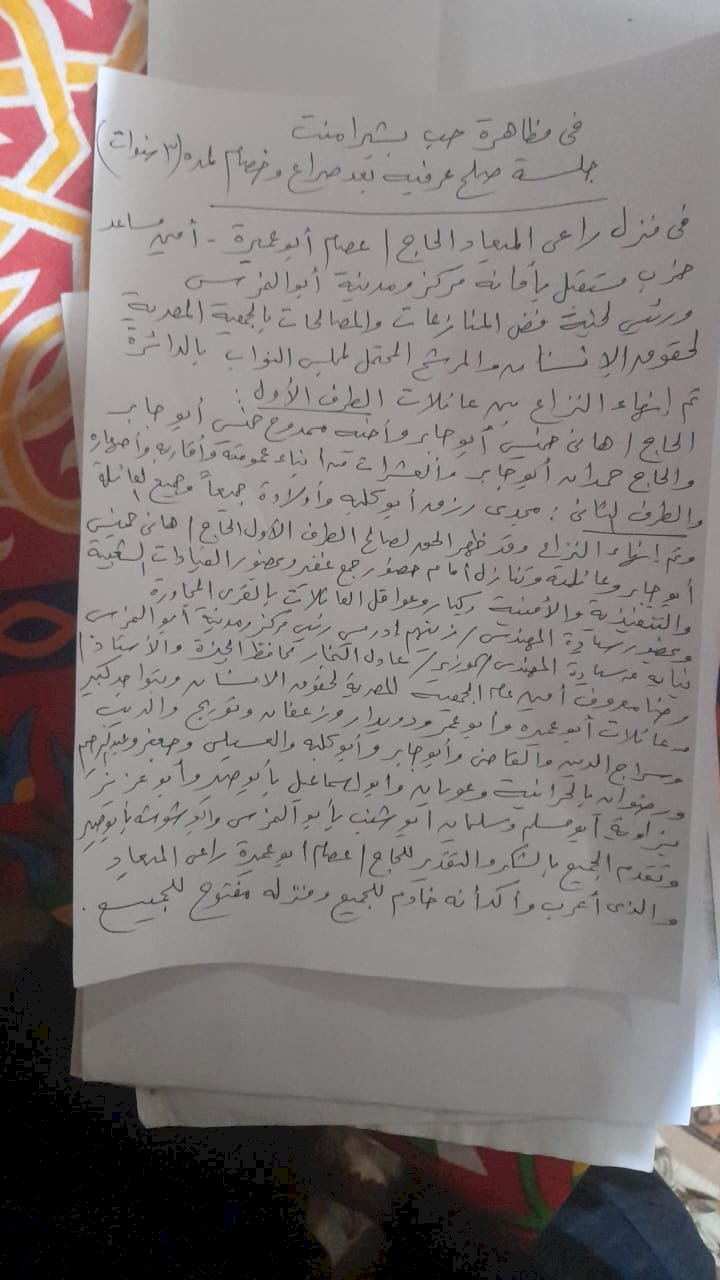 في مظاهرة حب بشبرامنت
جلسة صلح عرفية بعد صراع وخصام لمدة (٣ سنوات)
في منزل راعى الميعاد الحاج / عصام أبو عميرة - أمين مساعد
حزب مستقبل بأمانة مركز ومدينة أبو النمرس
ورئيس لجنة فض المنازعات والمصالحات بالجمعية المصرية
لحقوق الإنسان والمرشح المحتمل لمجلس النواب بالدائرة
تم إنهاء النزاع بين عائلات الطرف الأول :
الحاج / هانى خميس أبو جابر وأخيه ممدوح خميس أبو جابر
والحاج حمدان أبو جابر والعشرات من أبناء عمومته وأقاربه وأصهاره
والطرف الثانى : مجدى رزق أبو كلبه وأولاده جميعاً وجميع العائلة
وتم إنهاء النزاع وقد ظهر الحق لصالح الطرف الأول الحاج / هانى خميس
أبو جابر وعائلته وتنازل أمام حضور جمع غفير وبحضور القيادات الشعبية
والتنفيذية والأمنية وكبار وعواقل العائلات بالقرى المجاورة
وبحضور سيادة المهندس / إدريس رئيس مركز ومدينة أبو النمرس
نيابه عن سيادة المهندس الوزير / عادل النجار محافظ الجيزة والأستاذ /
رضا معروف أمين عام الجمعية المصرية لحقوق الانسان وبتواجد كبير
من عائلات أبو عميره وأبو عمر ودويدار وزعفان
وسراج الدين والقاضى وأبو جابر وأبو كلبه والعسيلى
ورضوان بالحرانية وأبو إسماعيل بأبو صير وأبو عزيز
بزاوية أبو مسلم وسلمان أبو شنب بأبو النمرس وأبو شوشه بأبو صير
وتقدم الجميع بالشكر والتقدير للحاج / عصام أبو عميرة راعى الميعاد
والذى أعرب وأكد أنه خادم للجميع ومنزله مفتوح للجميع .